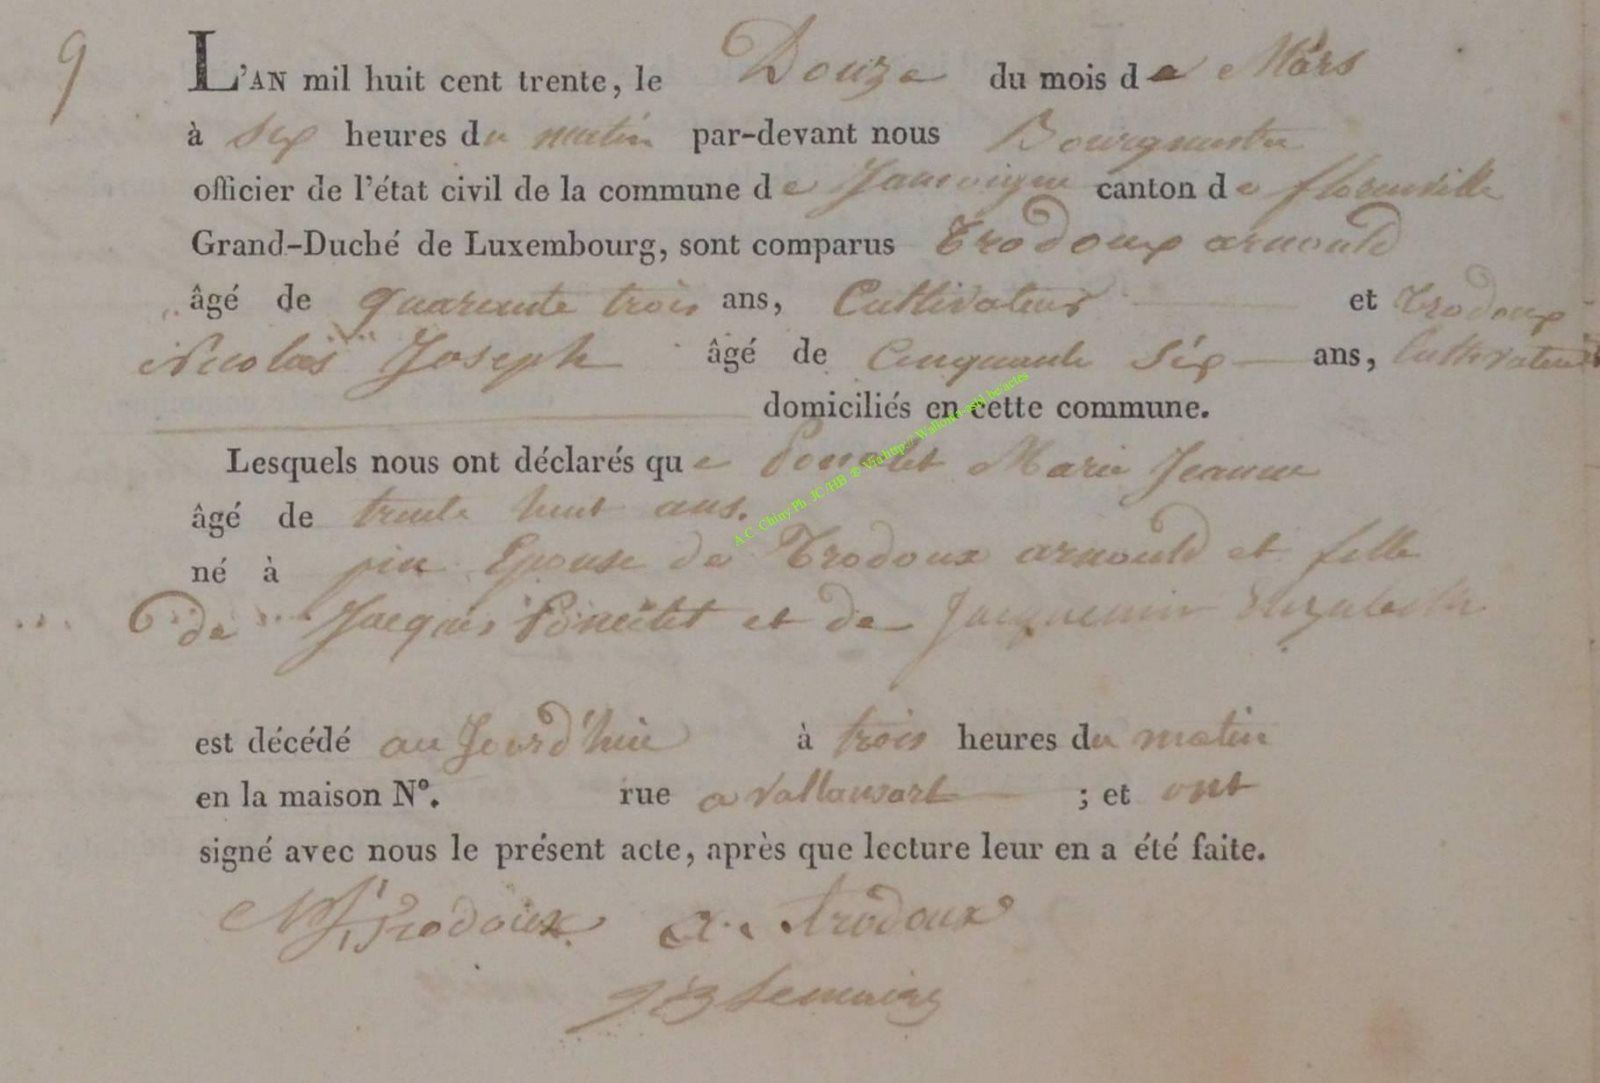 9
L'AN mil huit cent trente, le Douze du mois de Mars
à six heures du matin par-devant nous Bourgmestre
officier de l'état civil de la commune de Jamoigne canton de florenville
Grand-Duché de Luxembourg, sont comparus Trodoux arnould
âgé de quarente trois ans, Cultivateur et Trodoux
Nicolas Joseph âgé de Cinquante Six ans, Cultivateur
domiciliés en cette commune.
Lesquels nous ont déclarés que Poncelet Marie Jeanne
âgé de trente huit ans.
né à pin Epouse de Trodoux arnould et fille
de Jacques Poncelet et de Jacquemin
est décédé au Jourd'hui à trois heures du matin
en la maison N°. rue a Vallansart ; et ont
signé avec nous le présent acte, après que lecture leur en a été faite.
NJ Trodoux a. trodoux
A.C. Chiny Ph JC/HB © Via http:// Wallonia-asbl.be/actes